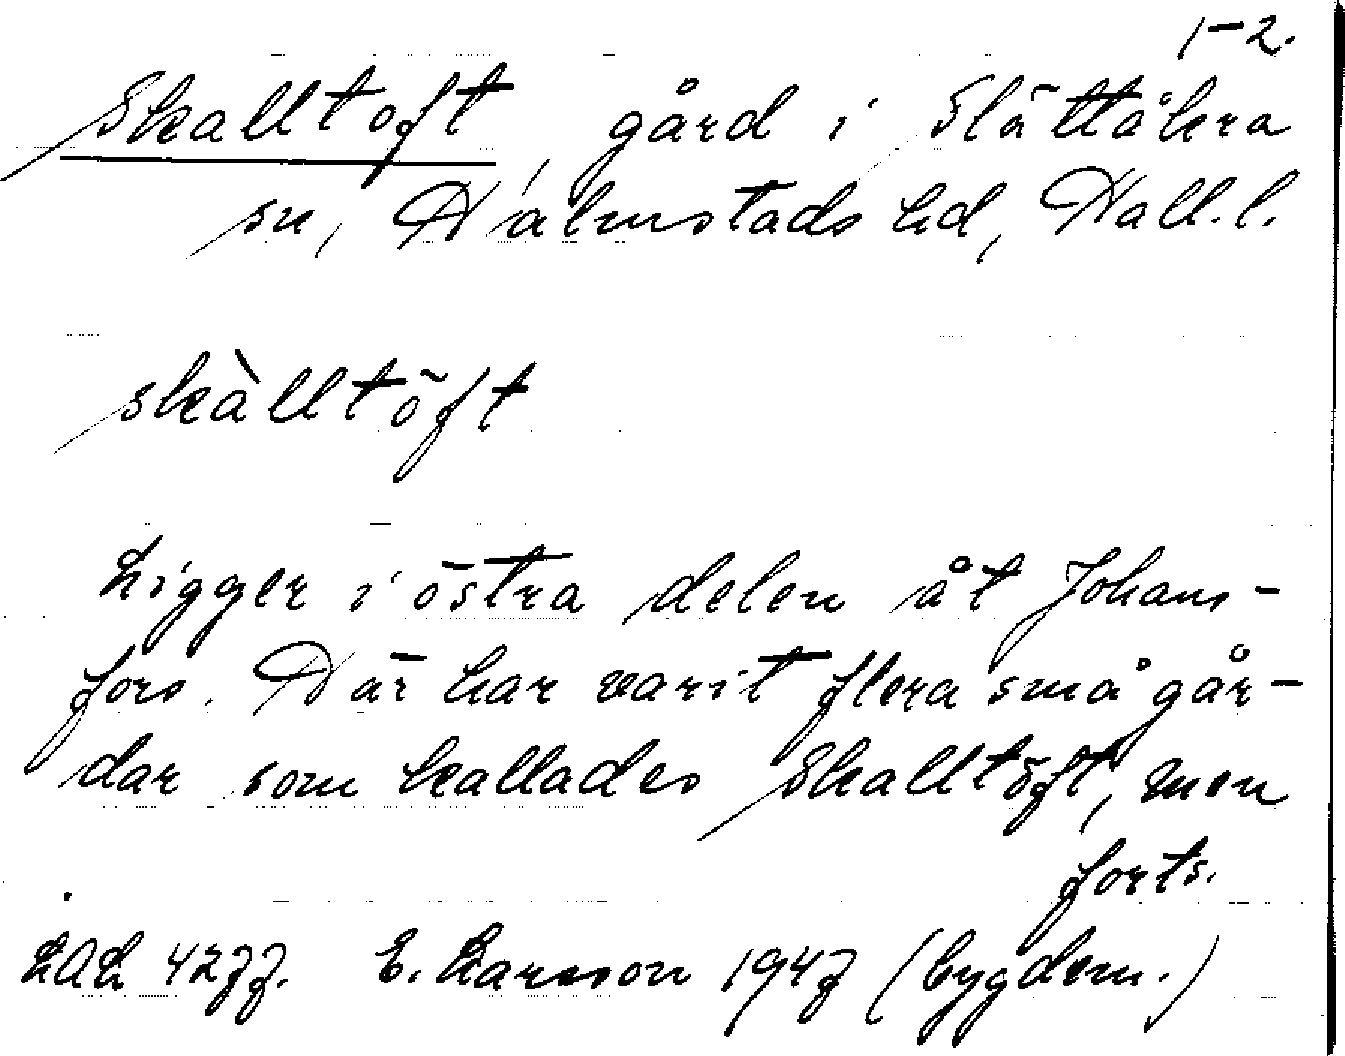 1-2.
Skalltoft, gård i Slättåkra
sn, Halmstads hd, Hall. l.
skàlltöft
Ligger i östra delen åt Johans-
fors. Där har varit flera små går-
dar som kallades Skalltöft, men
forts.
LAL 4277. E. Larsson 1947 (bygdem.)